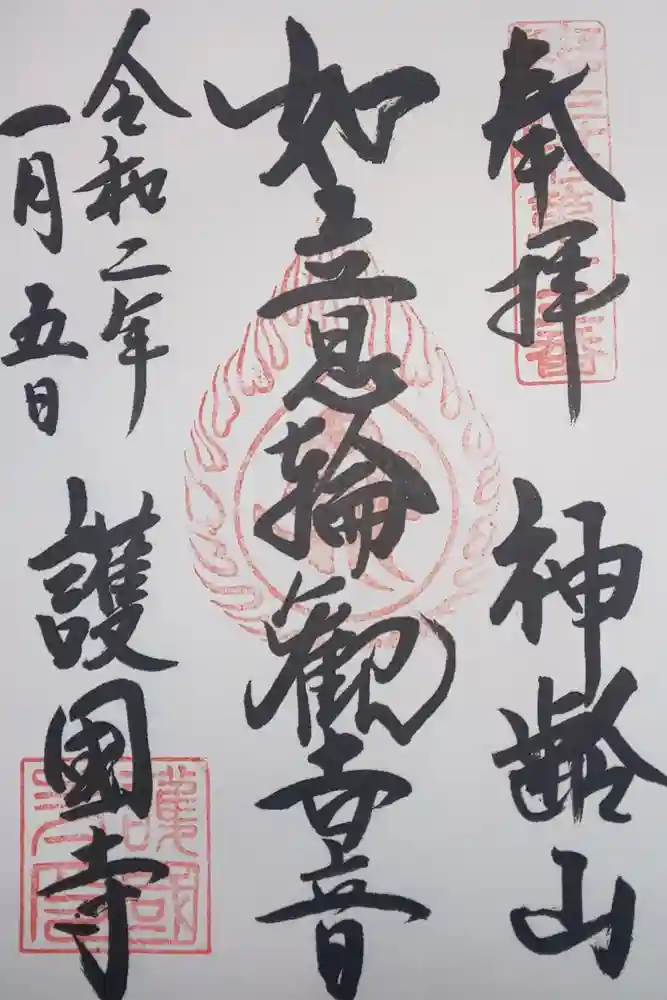 奉拝
神齢山
如意輪觀世音
令和二年
一月五日
護國寺